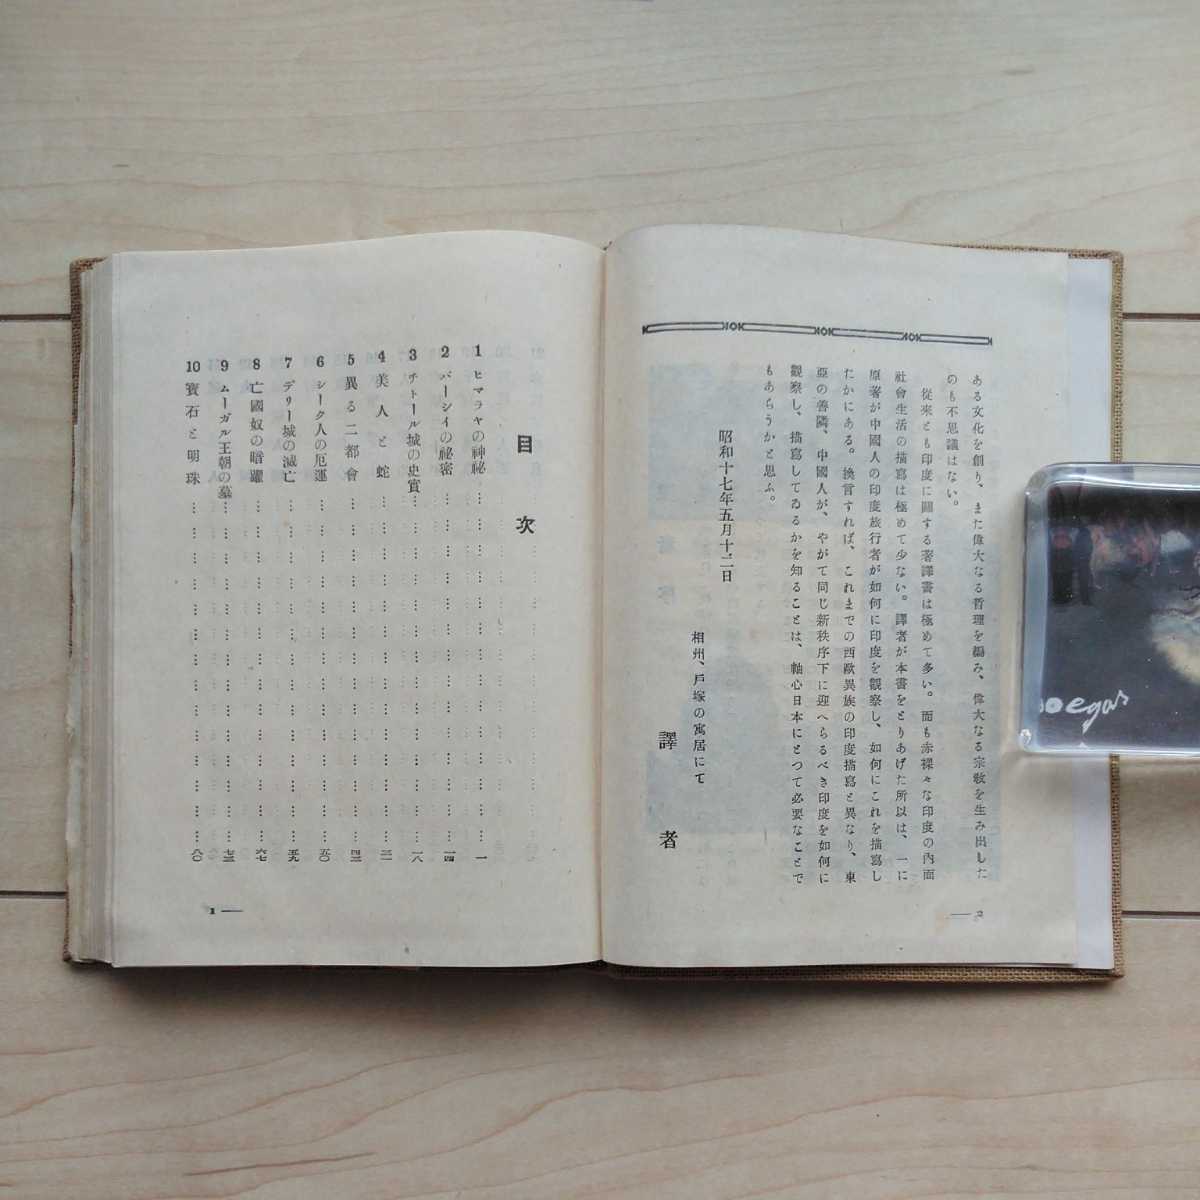 ある文化を創り、また偉大なる哲理を編み、偉大なる宗敎を生み出した
のも不思議はない。
從來とも印度に關する著譯書は極めて多い。而も赤裸々な印度の內面
社會生活の描寫は極めて少ない。譯者が本書をとりあげた所以は、一に
原著が中國人の印度旅行者が如何に印度を觀察し、如何にこれを描寫し
たかにある。換言すれば、これまでの西歐異族の印度描寫と異なり、東
亞の善隣、中國人が、やがて同じ新秩序下に迎へらるべき印度を如何に
觀察し、描寫してゐるかを知ることは、軸心日本にとつて必要なことで
もあらうかと思ふ。
昭和十七年五月十二日
相州、戶塚の寓居にて
譯者
2
目次
1 ヒマラヤの神祕 一
2 パーシイの祕密 一四
3 チトール城の史實 一八
4 美人と蛇
5 異る二都會
6 シーク人の厄運 五〇
7 デリー城の滅亡 五九
8 亡國奴の暗躍 六七
9 ムーガル王朝の墓
10 寶石と明珠 八〇
1
egas